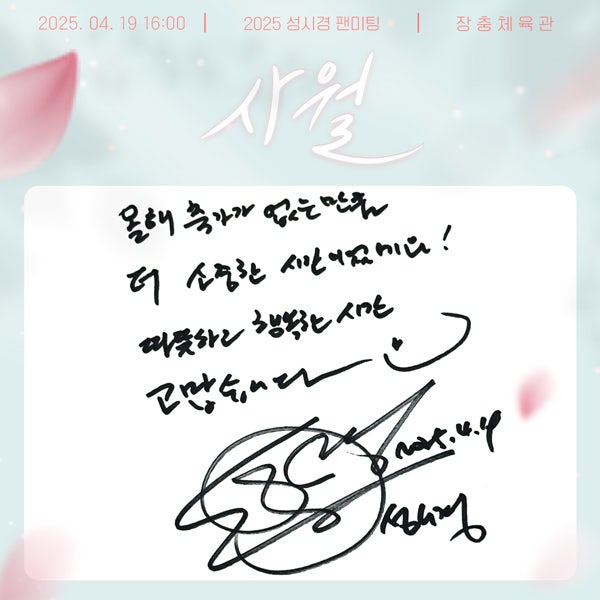 2025. 04. 19 16:00 | 2025 성시경 팬미팅 | 장충체육관
사월
올해 축가가 없는 만큼
더 소중한 시간이었네요!
따뜻하고 행복한 시간
고맙습니다
2025.4.19
성시경